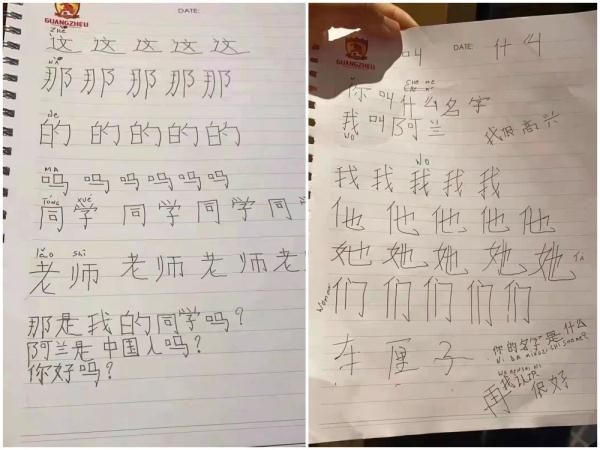 GUANGZHEU
DATE:
zhè
这 这 这 这 这
nà
那 那 那 那 那 那
de
的 的 的 的 的
MA
吗 吗 吗 吗 吗 吗
Tóng xué
同 学 同 学 同 学 同
lǎo shī
老 师 老 师 老 师 老
那是我的同学吗?
阿兰是中国人吗?
你好吗?
GUANGZHEU
叫 DATE: 什么
你叫什么名字
我叫阿兰
我很高兴
wo
我 我 我 我 我
他 他 他 他 他
她 她 她 她 她 TA
women
们 们 们 们 们
车 厘 子
你的名字是什么
我认识
再 很好